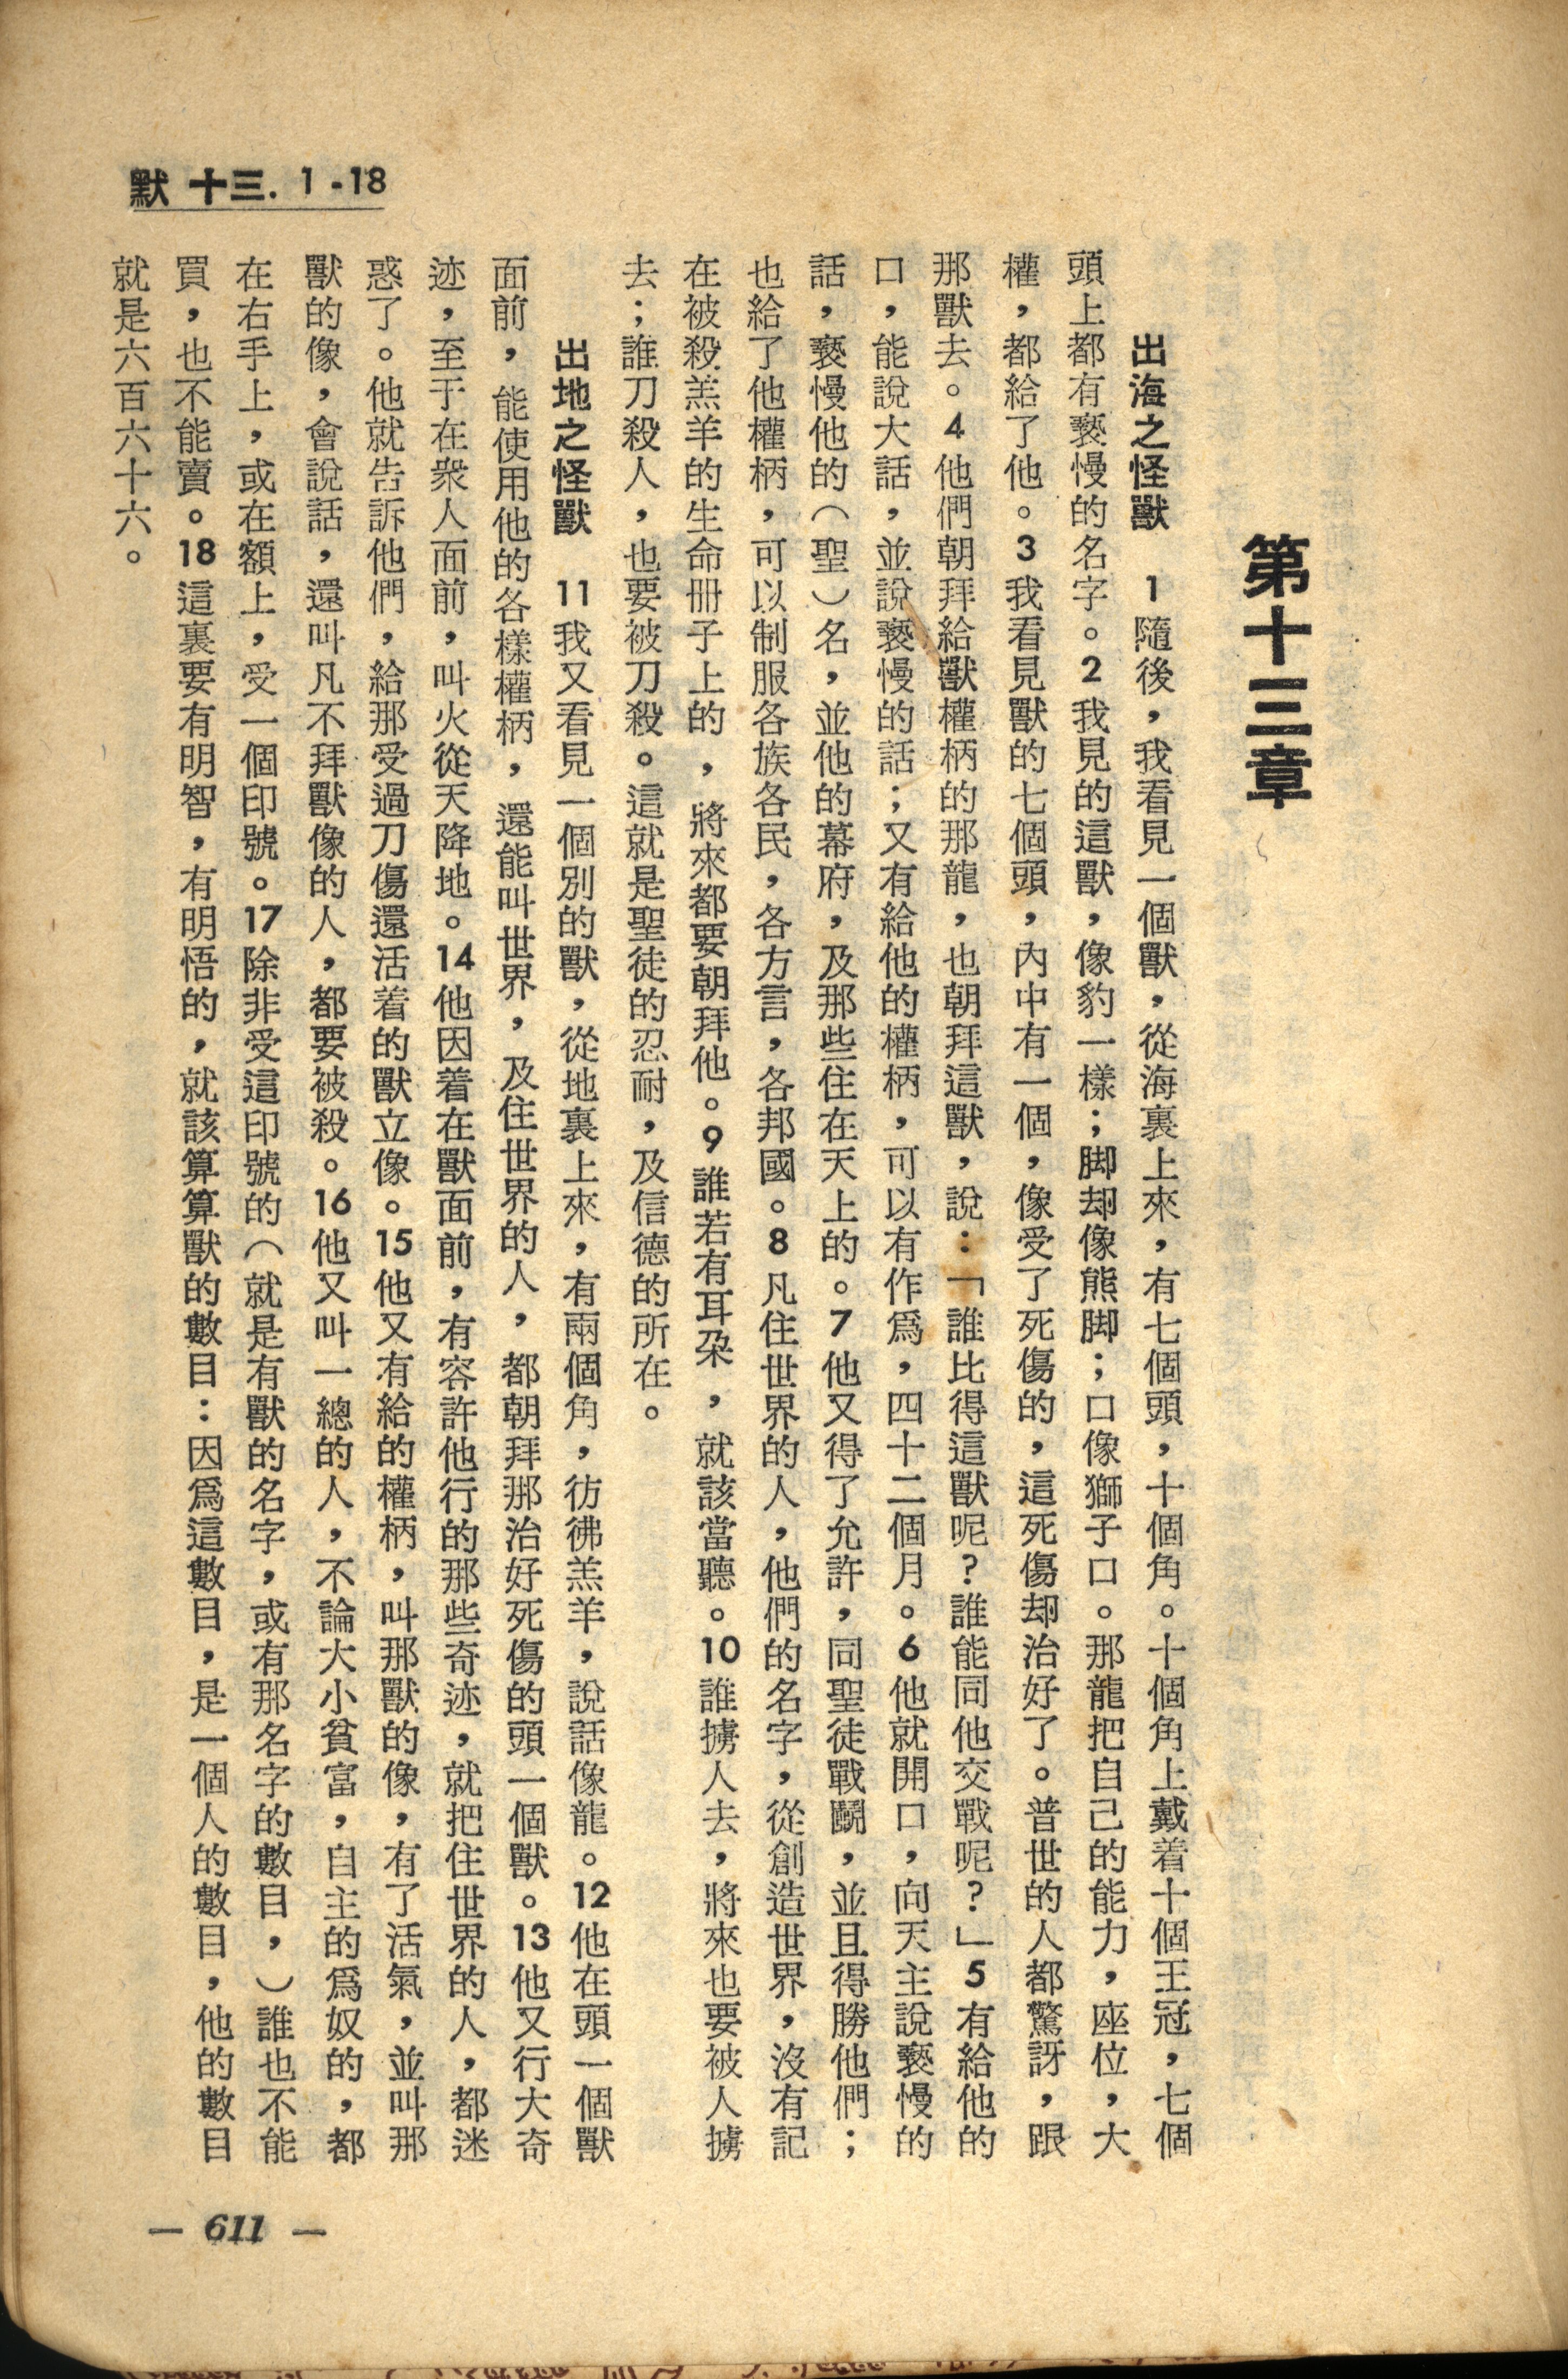 默 十三. 1 -18
第十三章
出海之怪獸　1隨後，我看見一個獸，從海裏上來，有七個頭，十個角。十個角上戴着十個王冠，七個
頭上都有褻慢的名字。2我見的這獸，像豹一樣；脚却像熊脚；口像獅子口。那龍把自己的能力，座位，大
權，都給了他。3我看見獸的七個頭，內中有一個，像受了死傷的，這死傷却治好了。普世的人都驚訝，跟
那獸去。4他們朝拜給獸權柄的那龍，也朝拜這獸，說：「誰比得這獸呢？誰能同他交戰呢？」5有給他的
口，能說大話，並說褻慢的話；又有給他的權柄，可以有作爲，四十二個月。6他就開口，向天主說褻慢的
話，褻慢他的（聖）名，並他的幕府，及那些住在天上的。7他又得了允許，同聖徒戰鬭，並且得勝他們；
也給了他權柄，可以制服各族各民，各方言，各邦國。8凡住世界的人，他們的名字，從創造世界，沒有記
在被殺羔羊的生命冊子上的，將來都要朝拜他。9誰若有耳朶，就該當聽。10誰擄人去，將來也要被人擄
去；誰刀殺人，也要被刀殺。這就是聖徒的忍耐，及信德的所在。
出地之怪獸　11我又看見一個別的獸，從地裏上來，有兩個角，彷彿羔羊，說話像龍。12他在頭一個獸
面前，能使用他的各樣權柄，還能叫世界，及住世界的人，都朝拜那治好死傷的頭一個獸。13他又行大奇
迹，至于在衆人面前，叫火從天降地。14他因着在獸面前，有容許他行的那些奇迹，就把住世界的人，都迷
惑了。他就告訴他們，給那受過刀傷還活着的獸立像。15他又有給的權柄，叫那獸的像，有了活氣，並叫那
獸的像，會說話，還叫凡不拜獸像的人，都要被殺。16他又叫一總的人，不論大小貧富，自主的爲奴的，都
在右手上，或在額上，受一個印號。17除非受這印號的（就是有獸的名字，或有那名字的數目，）誰也不能
買，也不能賣。18這裏要有明智，有明悟的，就該算算獸的數目：因爲這數目，是一個人的數目，他的數目
就是六百六十六。
— 611 —